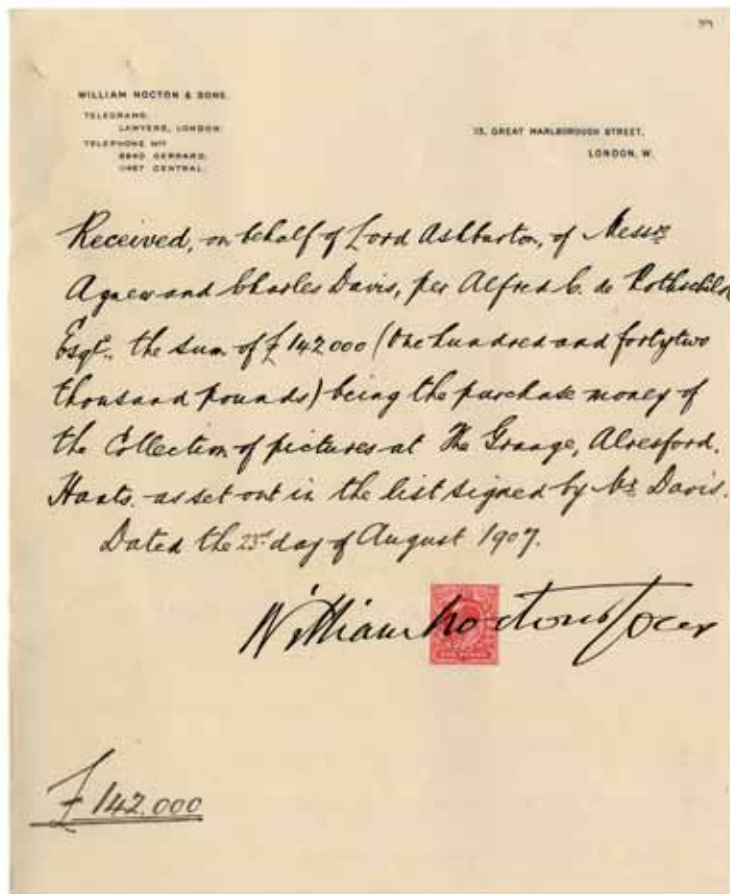 WILLIAM NOCTON & SONS.
TELEGRAMS:
LAWYERS, LONDON.
TELEPHONE Nos
LONDON, W.
13, GREAT MARLBOROUGH STREET,
GERRARD.
CENTRAL.
Received, on behalf of Lord Ashburton, of Messrs
Agnew and Charles Davis, per Alfred C. de Rothschild
Esqr., the sum of £142000 (One hundred and fortytwo
thousand pounds) being the purchase money of
the Collection of pictures at The Grange, Alresford.
Hants. as set out in the list signed by Mr Davis.
Dated the 23rd day of August 1907.
William Nocton & Sons
ONE PENNY
£142.000